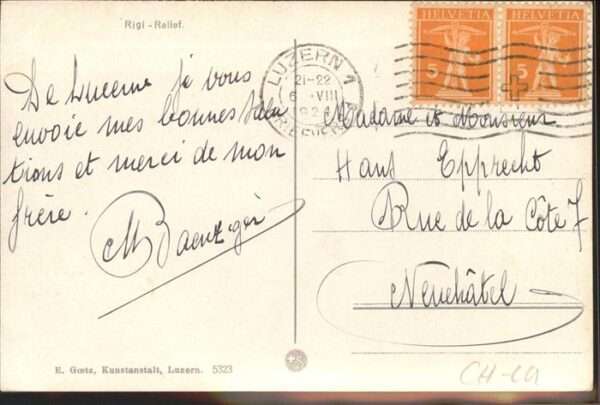 Rigi-Relief.
De Lucerne je vous
envoie mes bonnes saluta
tions et merci de mon
frère.
M Baenziger
E. Goetz, Kunstanstalt, Luzern. 5323
LUZERN 1
21-22
6 VIII
HELVETIA
5
HELVETIA
5
Madame et Monsieur
Hans Epprecht
Rue de la Côte 7
Neuchâtel
CH-